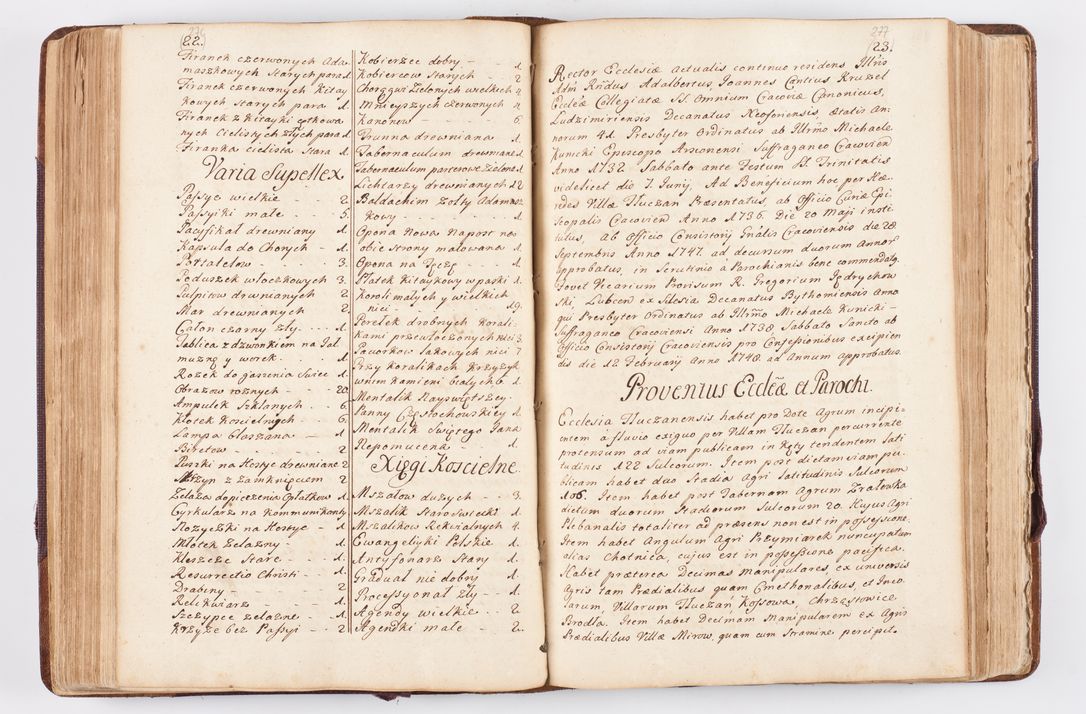 22.
Firanek czerwonych Ada-
maszkowych starych para 1
Firanek czerwonych kitay
kowych starych para 1
Firanek z kitayki cętkowa
nych cielistych złych para 1
Firanka cielista stara 1.
Varia Supellex
Passye wielkie 2
Passyiki małe 5.
Pacyfikał drewniany 1
Kapsuła do Chorych 1
Portatelow 3.
Poduszek włoczkowych 3.
Pulpitow drewnianych 2
Mar drewnianych 2
Całon czarny zły 1
Tablica z dzwonkiem na Jał
mużnę y worek 1
Rożek do gaszenia świec 1
Obrazow rożnych 20
Ampułek szklanych 6
Kłotek Koscielnych 6
Lampa blaszana 1
Biretow 2
Puszki na Hostye drewniane 2
z zamknięciem 2
Zelaza do pieczenia Opłatkow 1
Cyrkularz na kommunikanty
Nożyczki na Hostye 1
Młotek żelazny 1
Kleszcze stare 1
Resurrectio Christi 1
Drabiny 2
Relikwiarz 1
Szczypce żelazne 1
Krzyże bez Passyi 2
Kobierzec dobry 1
Kobiercow starych 2
Chorągwi zielonych wielkich 4
Mnieyszych czerwonych 4
Kanonow 6.
Trunna drewniana 1
Tabernaculum drewniane 1
Tabernaculum parterowe zielone 1
Lichtarzy drewnianych 12
Baldachim zołty Adamasz
kowy 1.
Opona nowa na post na
obie strony malowana 1.
Opona na Tęczę 1
Płatek Kitaykowy w paski 1
Korali małych y wielkich
nici 19.
Perełek drobnych korali-
kami przewłoczonych nici 3.
Paciorkow lakowych nici 7
Przy koralikach krzyżyk
w nim kamieni białych 6 1.
Mentalik Nayswiętszey
Panny Częstochowskiey 1.
Mentalik Swiętego Jana
Nepomucena 1.
Xięgi Koscielne
Mszałow dużych 3.
Mszalik Staroswiecki 1
Mszalikow Rekwialnych 4.
Ewangeliyki Polskie 1
Antyfonarz Stary 1.
Graduał nie dobry 1.
Processyonał zły 1.
Agendy wielkie 2.
Agendki małe 2.
277
23.
Rector Ecclesiæ actualis continuo residens Illris
Adm Rndus Adalbertus, Joannes Cantius Kruzel
Ecclæ Collegiatæ SS. Omnium Cracoviæ Canonicus,
Ludzimiriensis Decanatus Neoforiensis, ætatis An:
norum 41. Presbyter Ordinatus ab Illrmo Michaele
Kunicki Episcopo Arsonensi Suffraganeo Cracovien
Anno 1732 Sabbato ante Festum SS. Trinitatis
videlicet die 7. Junij. Ad Beneficium hoc per Hæ-
redes Villæ Tłuczań Præsentatus, ab Officio Curiæ Epi
scopalis Cracovien Anno 1736. Die 20 Maji insti
tutus, ab Officio Consistorij Gnalis Cracoviensis die 28
Septembris Anno 1747. ad decursum duorum Annor
approbatus, in scrutinio a Parochianis bene commendatg.
Fovet Vicarium Provisum R. Gregorium Jędrychow
ski Lubcen ex Silesia Decanatus Bythomiensis Anno
qui Presbyter Ordinatus ab Illrmo Michaele Kunicki
Suffraganeo Cracoviensi Anno 1738. Sabbato Sancto ab
Officio Consistorij Cracoviensis pro Confessionibus excipien
dis die 12 February Anno 1748. ad Annum approbatus.
Provenius Ecclæ et Parochi.
Ecclesia Tłuczanensis habet pro Dote Agrum incipi-
entem a fluvio exiguo per Villam Tłuczan percurrente
protensum ad viam publicam in Kęty tendentem lati
tudinis 122 Sulcorum. Item post dictam viam pu-
blicam habet duo Stadia Agri latitudinis Sulcorum
106. Item habet post Tabernam Agrum Zrałowka
dictum duorum Stadiorum Sulcorum 20. Hujus Agri
Plebanalis totaliter ad præsens non est in possessione.
Item habet Angulum Agri Przymiarek nuncupatum
alias Chotnica, cujus est in possessione pacifica.
Habet præterea Decimas manipulares, ex universis
Agris tam Prædialibus quam Cmethonalibus, et Inco
larum, Villarum Tłuczań, Kossowa, Chrząstowice
Brodła. Item habet Decimam Manipularem ex Agris
Prædialibus Villæ Mirow, quam cum Stramine percipit.